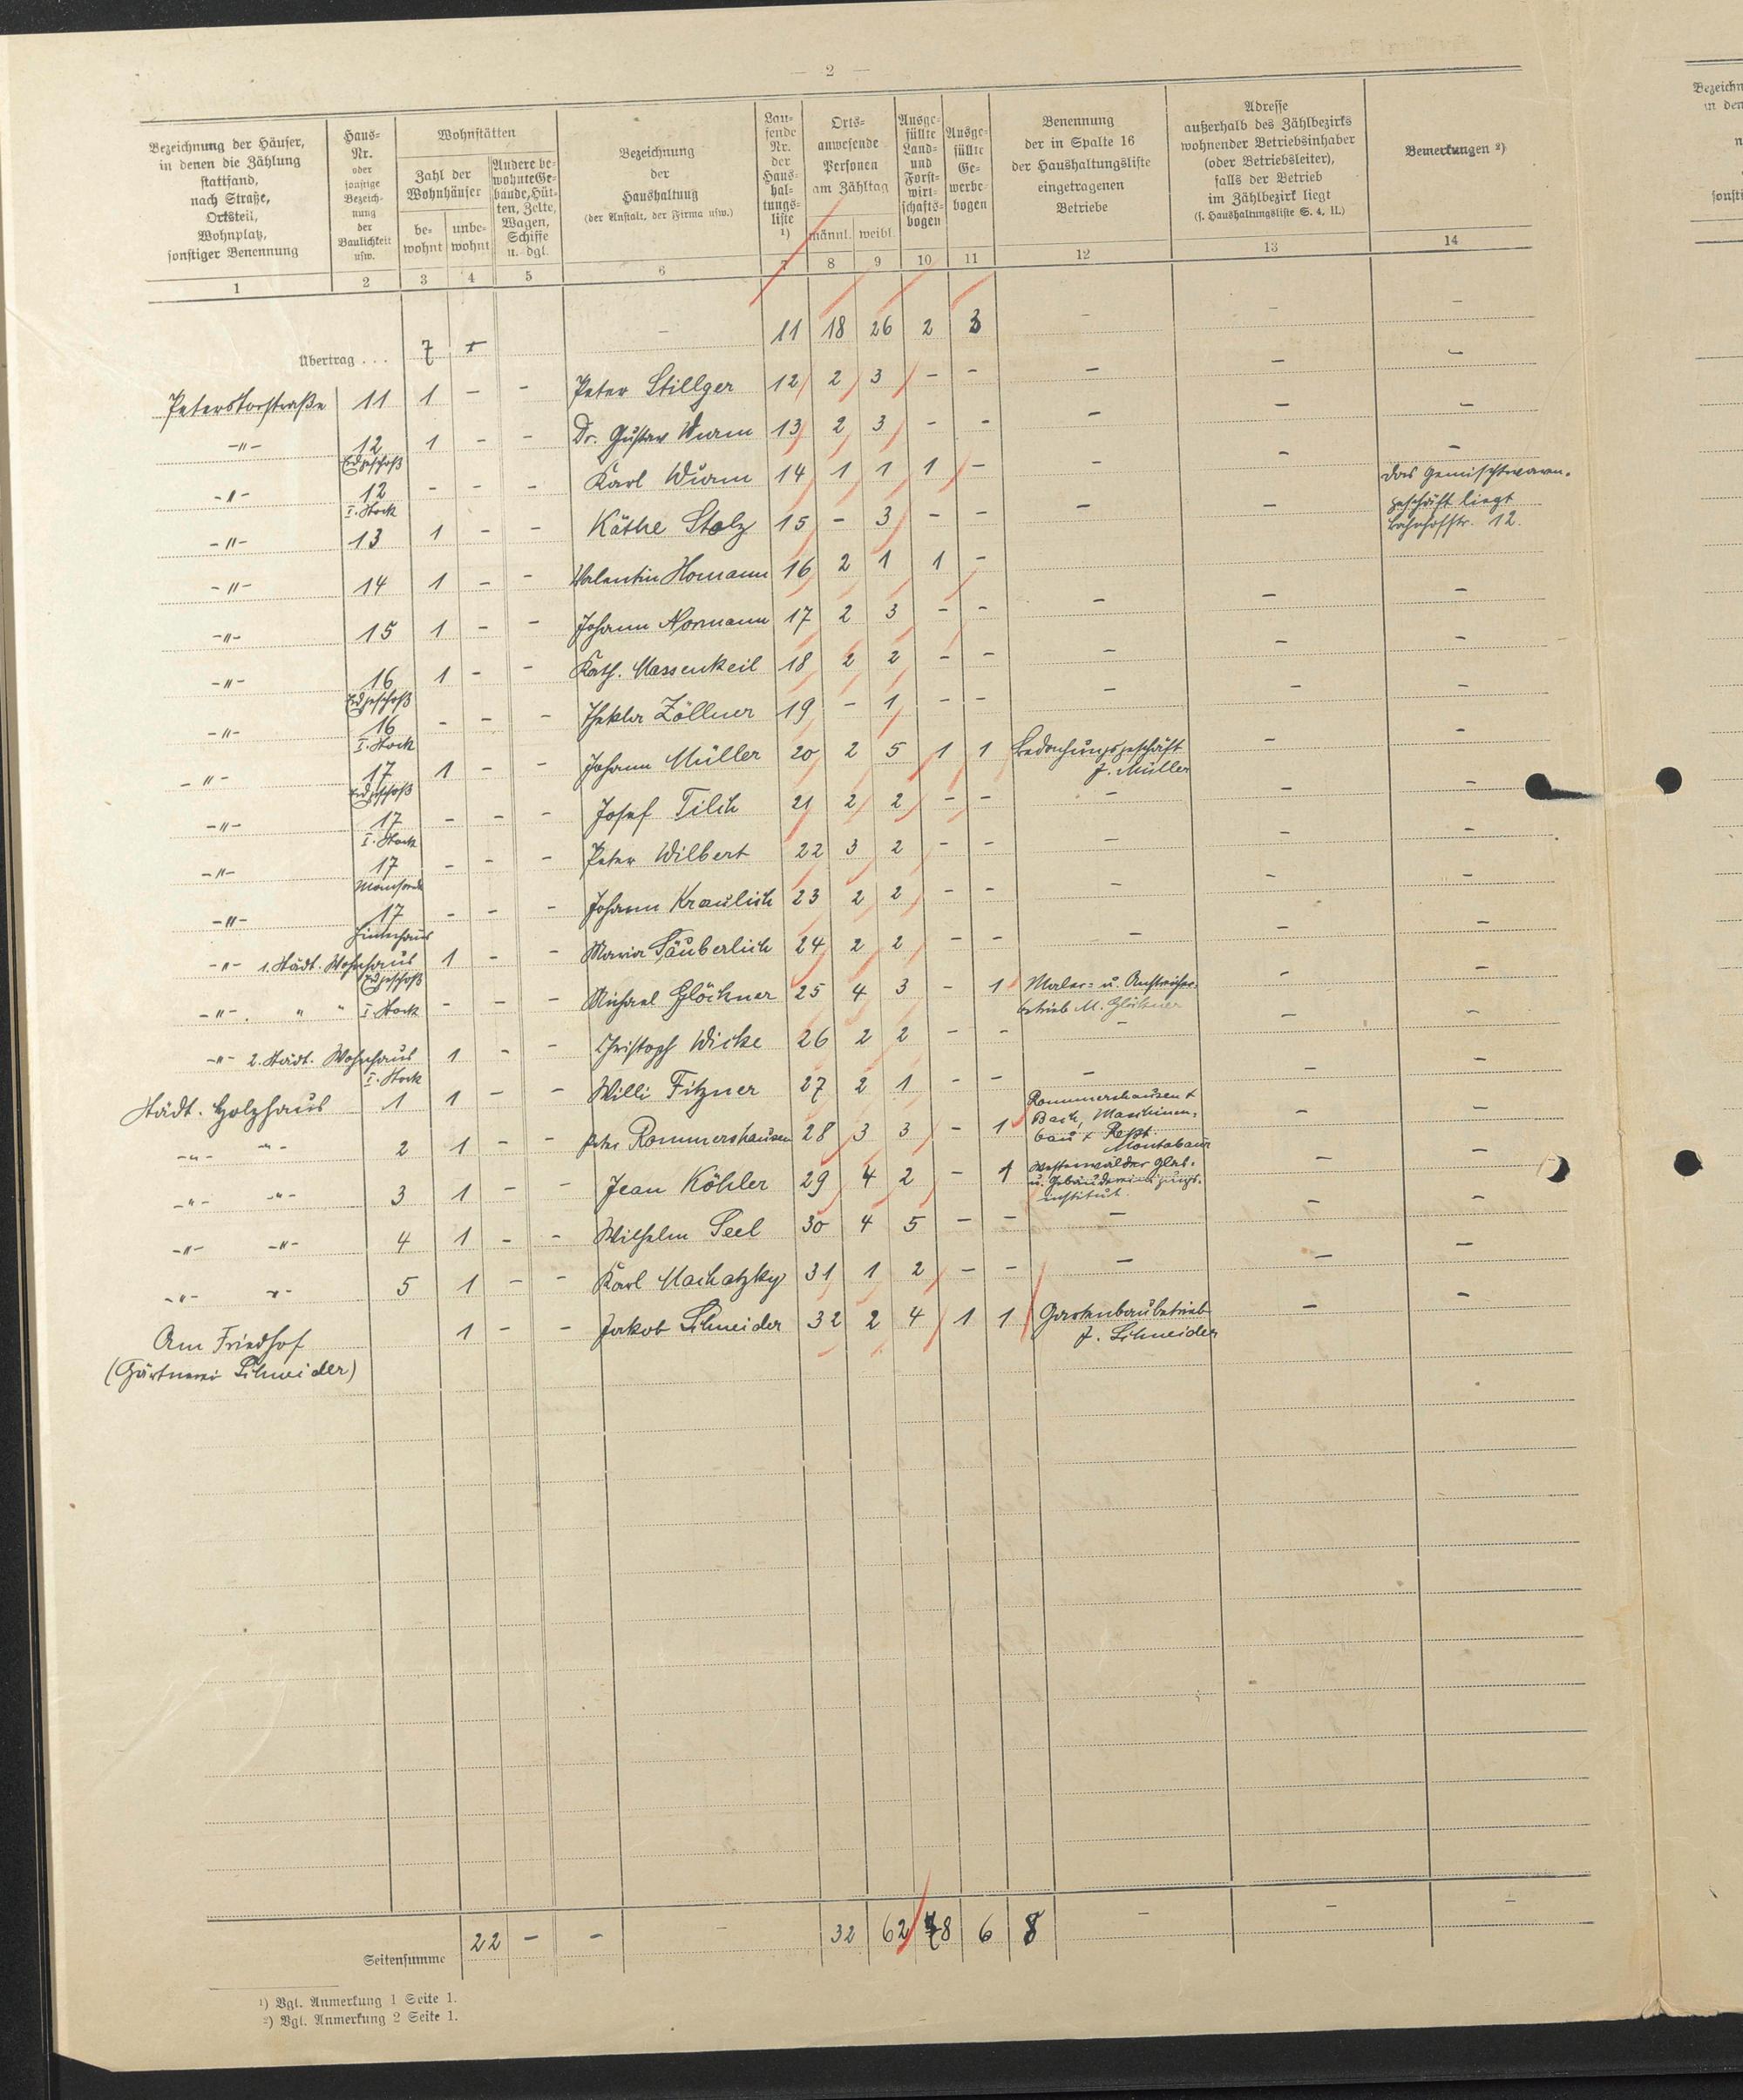 — 2 —
Bezeichnung der Häuser, in denen die Zählung stattfand, nach Straße, Ortsteil, Wohnplatz, sonstiger Benennung
Haus-Nr. oder sonstige Bezeichnung der Baulichkeit usw.
Wohnstätten
Zahl der Wohnhäuser
bewohnt
unbewohnt
Andere bewohnte Gebäude, Hütten, Zelte, Wagen, Schiffe u. dgl.
Bezeichnung der Haushaltung (der Anstalt, der Firma usw.)
Laufende Nr. der Haushaltungsliste 1)
Ortsanwesende Personen am Zähltag
männl.
weibl.
Ausgefüllte Land- und Forstwirtschaftsbogen
Ausgefüllte Gewerbebogen
Benennung der in Spalte 16 der Haushaltungsliste eingetragenen Betriebe
Adresse außerhalb des Zählbezirks wohnender Betriebsinhaber (oder Betriebsleiter), falls der Betrieb im Zählbezirk liegt (s. Haushaltungsliste S. 4, II.)
Bemerkungen 2)
1 2 3 4 5 6 7 8 9 10 11 12 13 14
Übertrag . . . 7 — 11 18 26 2 3 — — —
Peterstorstraße 11 1 — — Peter Stillger 12 2 3 — — — — —
-"- 12 Erdgeschoß 1 — — Dr. Gustav Wurm 13 2 3 — — — — —
-"- 12 I. Stock — — — Karl Wurm 14 1 1 1 — — — —
Das Gemischtwaren-
geschäft liegt
Bahnhofstr. 12.
-"- 13 1 — — Käthe Stolz 15 — 3 — — — —
-"- 14 1 — — Valentin Homann 16 2 1 1 —
-"- 15 1 — — Johann Normann 17 2 3 — — — — —
-"- 16 Erdgeschoß 1 — — Kath. Massenkeil 18 2 2 — — — — —
-"- 16 I. Stock — — — Thekla Zöllner 19 — 1 — — — — —
-"- 17 Erdgeschoß 1 — — Johann Müller 20 2 5 1 1 Bedachungsgeschäft J. Müller — —
-"- 17 I. Stock — — — Josef Tilch 21 2 2 — — — — —
-"- 17 Mansarde — — — Peter Wilbert 22 3 2 — — — — —
-"- 17 Hinterhaus — — — Johann Kraulich 23 2 2 — — — — —
-"- 1. Städt. Wohnhaus Erdgeschoß 1 — — Maria Säuberlich 24 2 2 — — — — —
-"- " " I. Stock — — — Michael Glöckner 25 4 3 — 1 Maler- u. Anstreicher-
betrieb M. Glöckner — —
-"- 2. Städt. Wohnhaus I. Stock 1 — — Christoph Wicke 26 2 2 — — — — —
Städt. Holzhaus 1 1 — — Willi Fitzner 27 2 1 — — — — —
-"- -"- 2 1 — — Rommershausen 28 3 3 — 1 Rommershausen +
Bach, Maschinen-
bau + Rept.
Montabaur — —
-"- -"- 3 1 — — Jean Köhler 29 4 2 — 1 Westerwälder Glas-
u. Gebäudereinigungs-
institut. — —
-"- -"- 4 1 — — Wilhelm Seel 30 4 5 — — — — —
-"- -"- 5 1 — — Karl Machatzky 31 1 2 — — — — —
Am Friedhof 1 — — Jakob Schneider 32 2 4 1 1 Gartenbaubetrieb
J. Schneider — —
(Gärtnerei Schneider)
Seitensumme 22 — — — 32 62 78 6 8 — — —
1) Vgl. Anmerkung 1 Seite 1.
2) Vgl. Anmerkung 2 Seite 1.